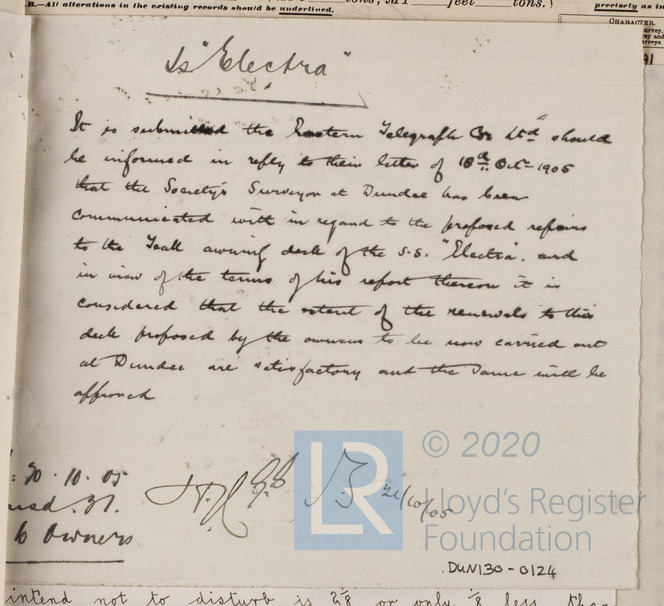 B.—All alterations in the existing records should be underlined.
feet
tons.
precisely as in
CHARACTER.
Ss "Electra"
It is submitted the Eastern Telegraph Co. Ltd should
be informed in reply to their letter of 18th Oct- 1905
that the Society's Surveyor at Dundee has been
communicated with in regard to the proposed repairs
to the Teak awning deck of the S.S. "Electra", and
in view of the terms of his report thereon it is
considered that the extent of the renewals to this
deck proposed by the owners to be now carried out
at Dundee are satisfactory and the same will be
approved
20.10.05
21/10/05
Owners
LR
© 2020
Lloyd's Register
Foundation
DUN130-0124
intend not to disturb is 2/8 or only 1/8 less than